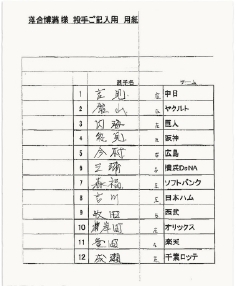 落合博満様 投手ご記入用 用紙
選手名 チーム
1 吉見 右 中日
2 館山 右 ヤクルト
3 内海 左 巨人
4 能見 左 阪神
5 今村 右 広島
6 三浦 右 横浜DeNA
7 森福 左 ソフトバンク
8 吉川 左 日本ハム
9 牧田 右 西武
10 岸田 右 オリックス
11 釜田 右 楽天
12 成瀬 左 千葉ロッテ